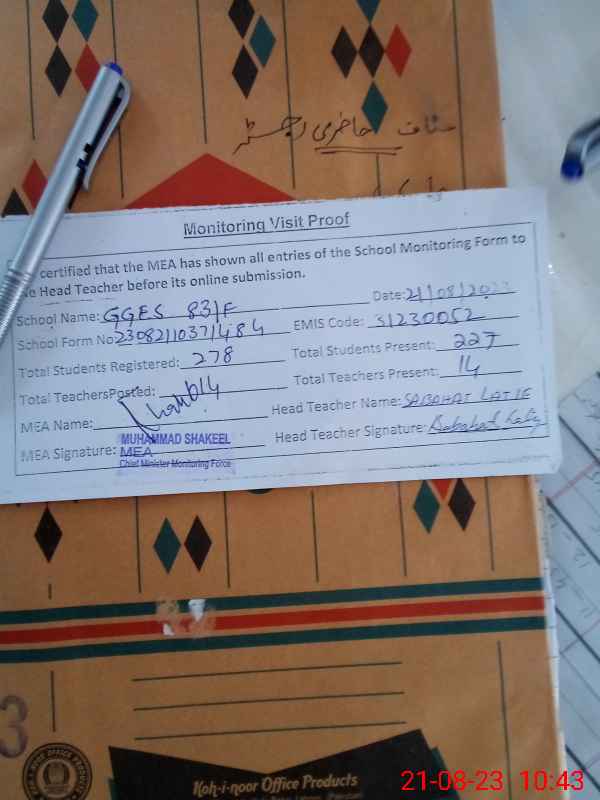 سٹاف حاضری رجسٹر
Monitoring Visit Proof
certified that the MEA has shown all entries of the School Monitoring Form to
Head Teacher before its online submission.
School Name: GGES 83/F Date: 21/08/2023
School Form No 23082110371484 EMIS Code: 31230052
Total Students Registered: 278 Total Students Present: 227
Total TeachersPosted: 14 Total Teachers Present: 14
MEA Name: Head Teacher Name: SABAHAT LATIF
MUHAMMAD SHAKEEL
MEA Signature: MEA Head Teacher Signature: Sabahat Latif
Chief Minister Monitoring Force
3
Koh-i-noor Office Products
21-08-23 10:43